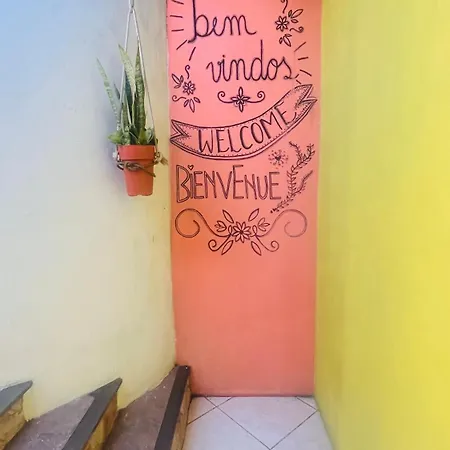 bem
vindos
WELCOME
BiENVENUE